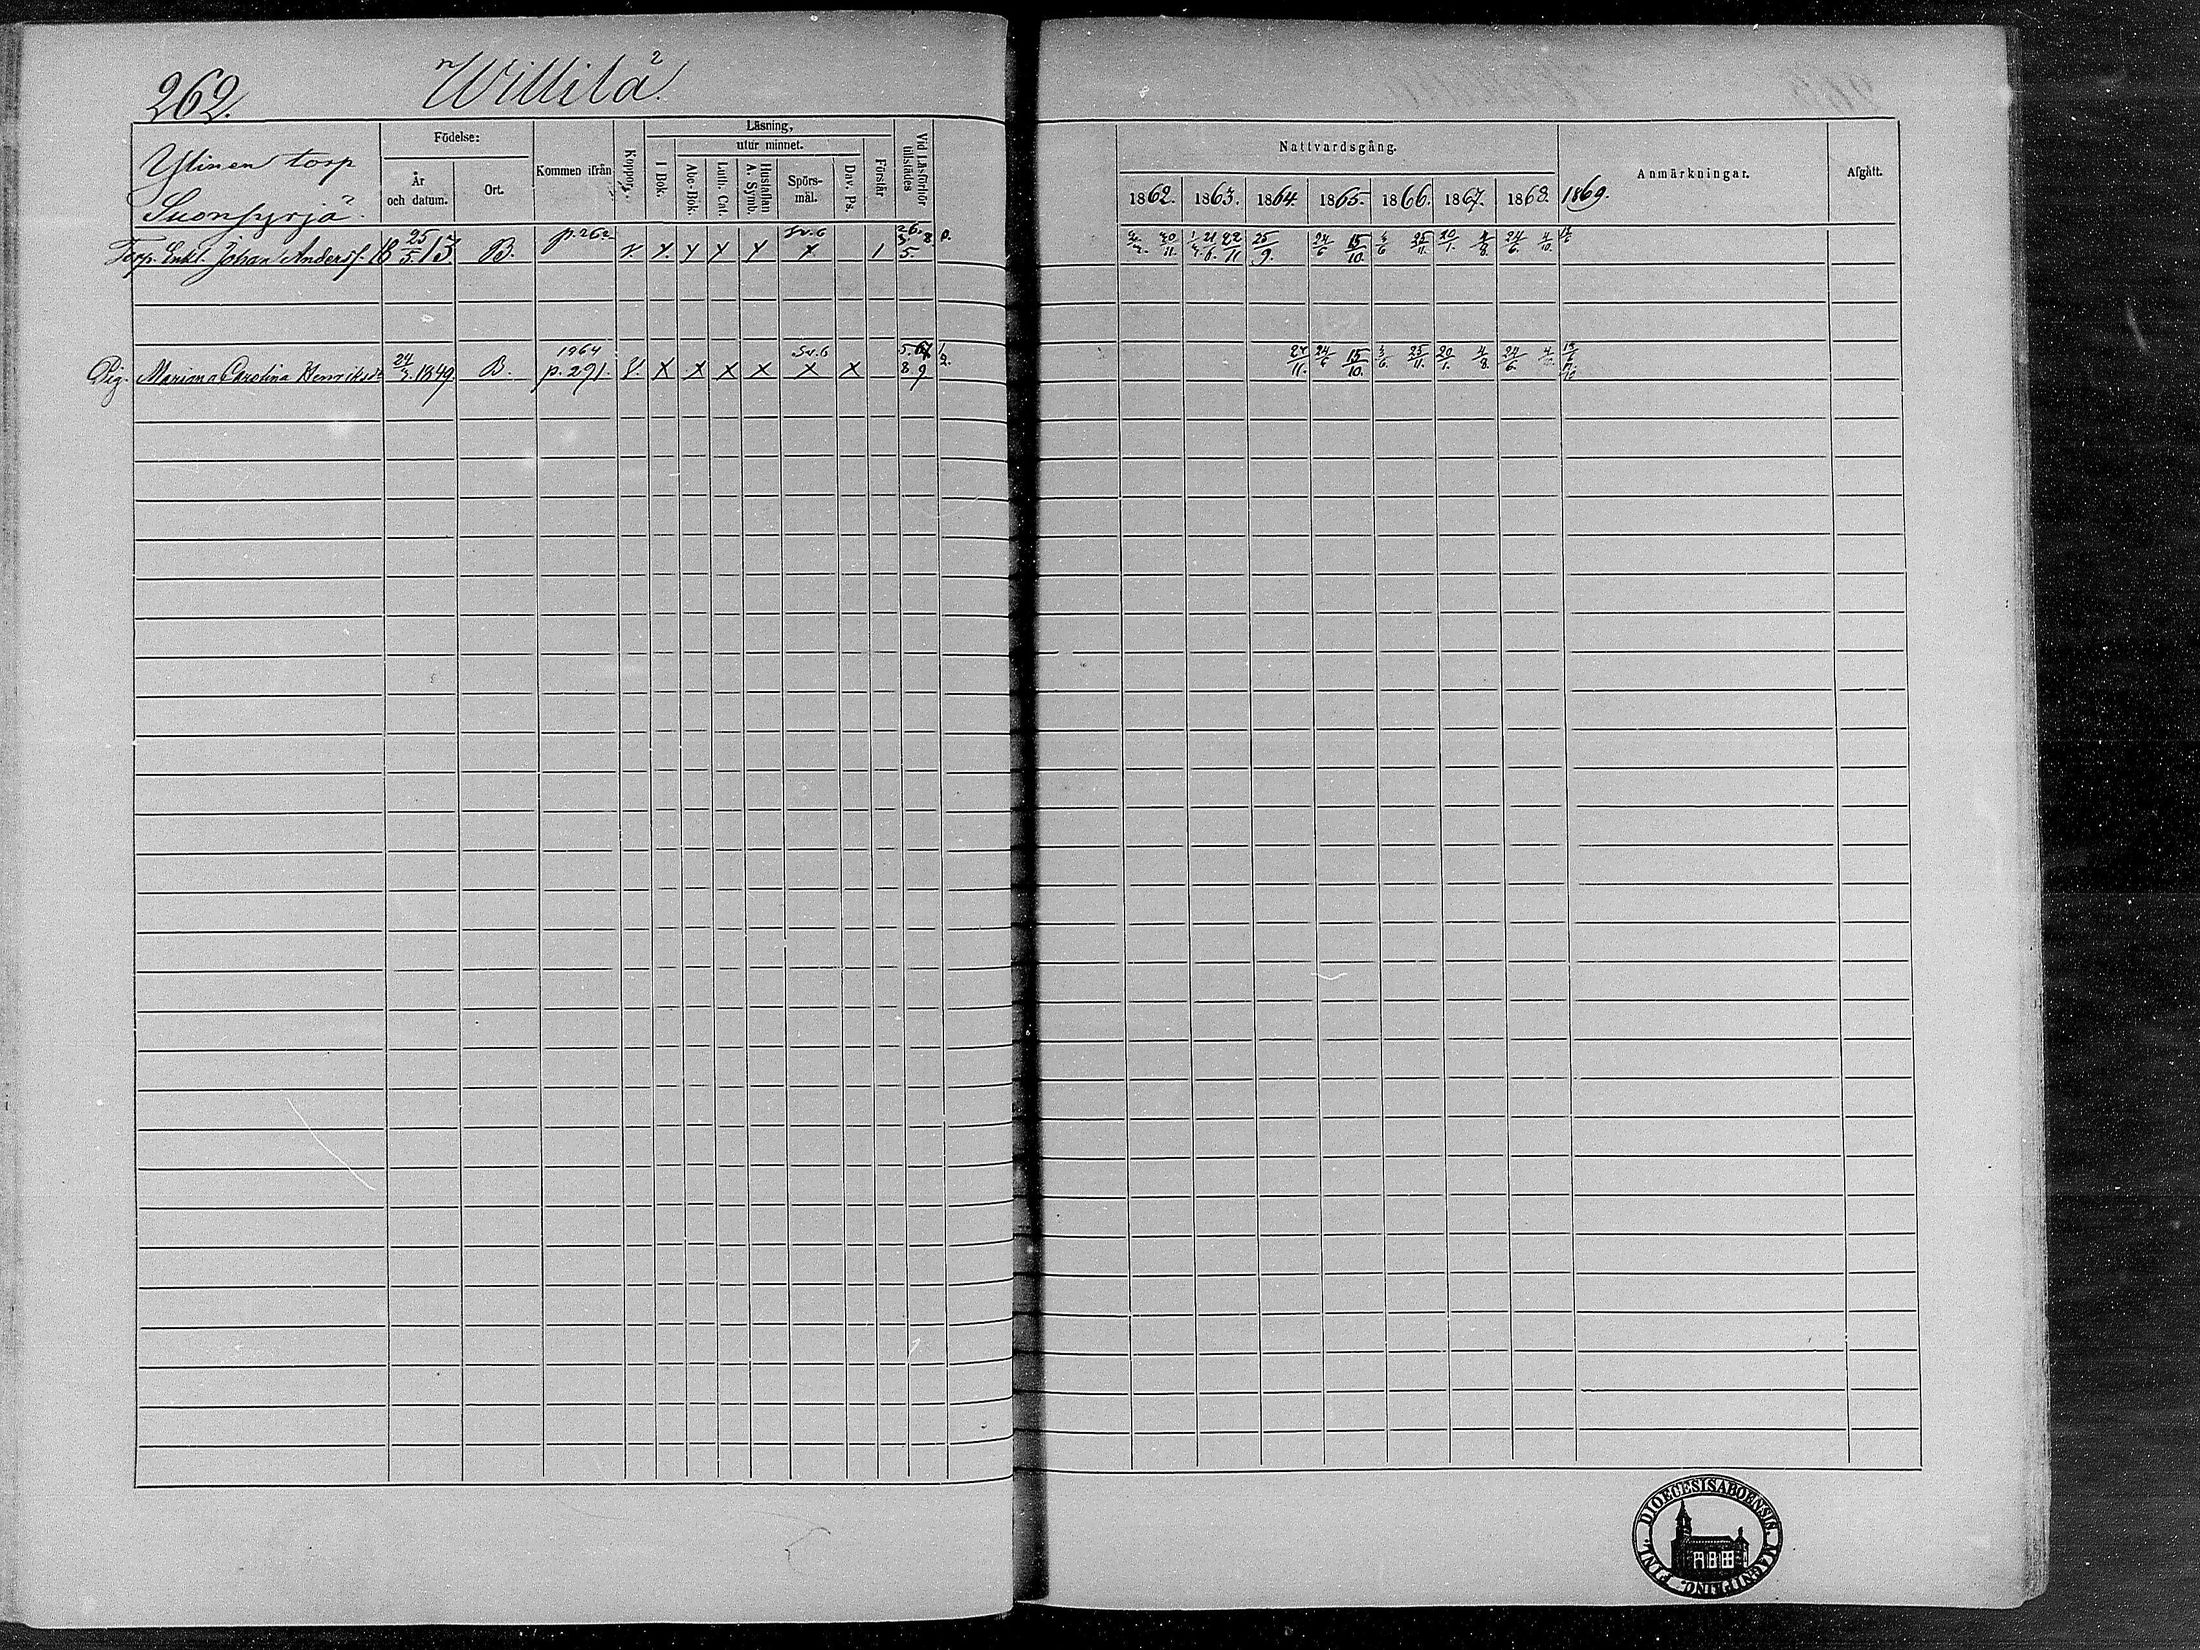 262.
Willilä
Ylinen torp
Suonsyrjä
Födelse:
År och datum.
Ort.
Kommen ifrån
Koppor.
Läsning,
I Bok.
utur minnet.
Abc-Bok.
Luth. Cat.
Hustaflan A. Symb.
Spörsmål.
Dav. Ps.
Förstår
Vid Läsförhör tillstädes
Nattvardsgång.
1862. 1863. 1864. 1865. 1866. 1867. 1868. 1869.
Anmärkningar.
Afgått.
Torp. Enkl. Johan Andersf. 18 25/5 13 B. p. 262 v. x x x x Sv. 6 x 1 20/11 1/3 21/6 22/11 25/9 24/6 15/10 3/6 25/11 20/1 4/8 24/6 4/10
Pig. Mariana Carolina Henriksd. 24/3 1849. B. 1864 p. 291. v. x x x x Sv. 6 x x 27/11 24/6 15/10 3/6 25/11 20/1 4/8 24/6 4/10
DIOECESIS ABOENSIS MAGNI PRINC. FINL.